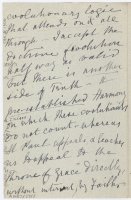 evolutionary logic
that attends on & all
through — I accept the
doctrine of evolution
half way as
But there is another
side of Truth — the
pre-established Harmony
in which these evolutionists
do not count whereas
if Kant offers a teacher
us to appeal to the
throne of Grace directly
without interest by